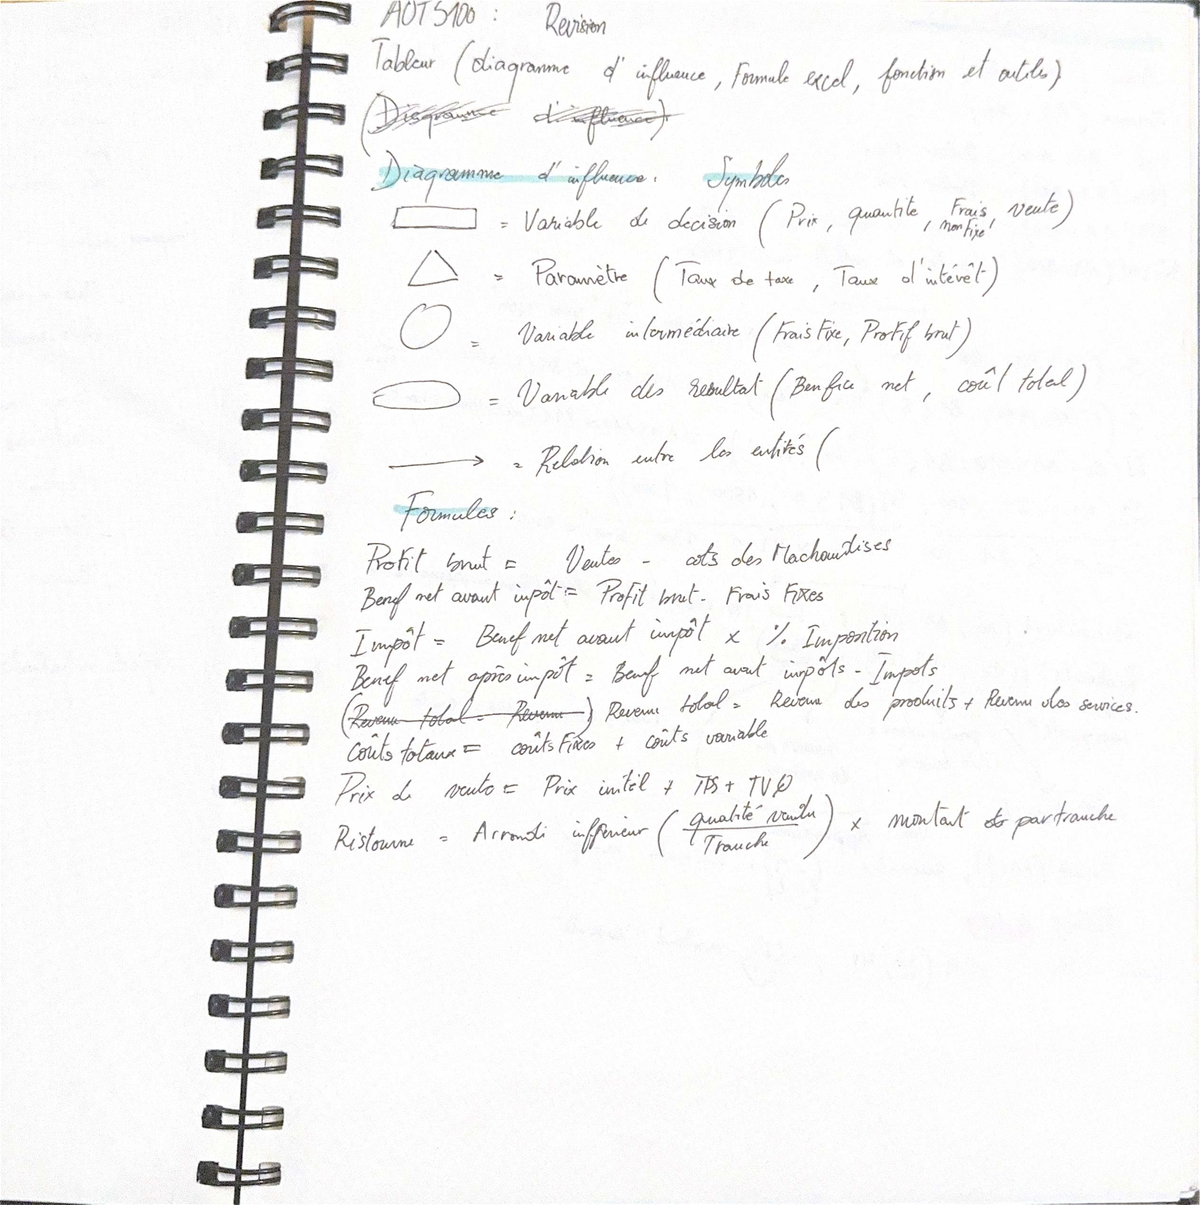 AOTS100 : Revision
Tableur (diagramme d'influence, Formule excel, fonction et outils)
(Diagramme d'influence)
Diagramme d'influence. Symboles
= Variable de decision (Prix, quantite, Frais non fixe, vente)
= Paramètre (Taux de taxe, Taux d'intérêt)
= Variable intermédiaire (Frais Fixe, Profif brut)
= Variable des resultat (Benfice net, coûl total)
= Relation entre les entités (
Formules :
Profit brut = Ventes - cots des Machandises
Benef net avant impôt = Profit brut - Frais Fixes
Impôt = Benef net avant impôt x % Imposition
Benef net après impôt = Benef net avat impôts - Impots
(Revenu total = Revenu) Revenu total = Revenu des produits + Revenu des services.
Coûts totaux = coûts Fixes + coûts variable
Prix de vente = Prix initél + TPS + TVQ
Ristourne = Arrondi inférieur (qualité vendu / Tranche) x montant par tranche